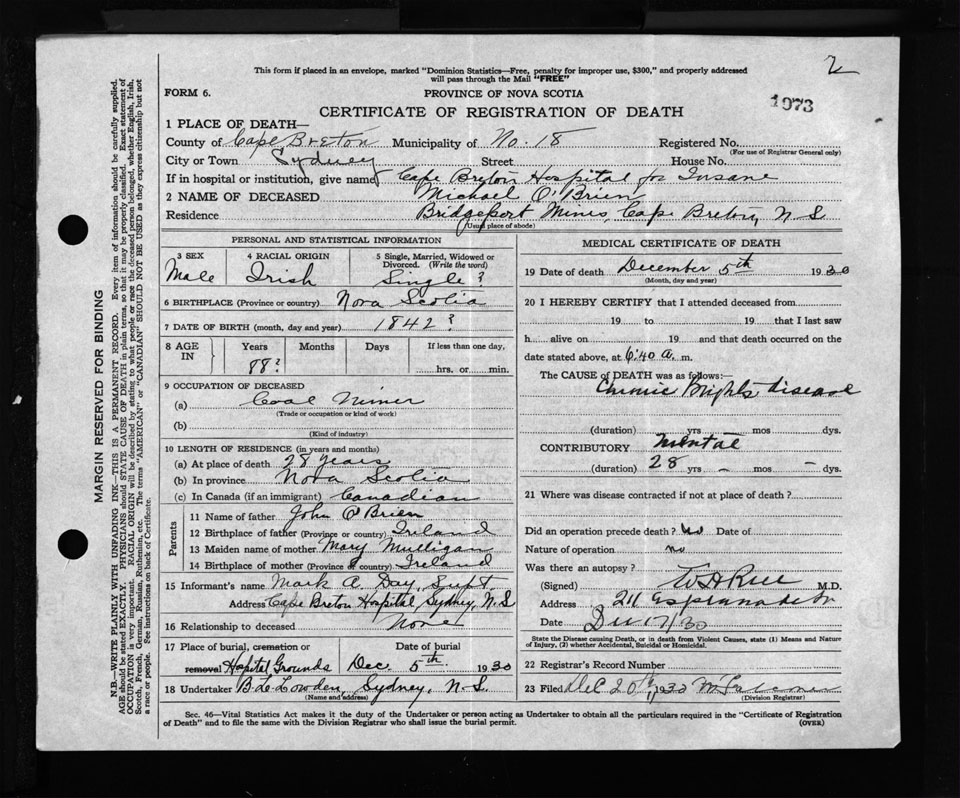 2
This form if placed in an envelope, marked "Dominion Statistics—Free, penalty for improper use, $300," and properly addressed
will pass through the Mail "FREE"
FORM 6. PROVINCE OF NOVA SCOTIA
1973
CERTIFICATE OF REGISTRATION OF DEATH
1 PLACE OF DEATH—
County of Cape Breton Municipality of No. 18 Registered No.
(For use of Registrar General only)
City or Town Sydney Street House No.
If in hospital or institution, give name Cape Breton Hospital for Insane
2 NAME OF DECEASED Michael O'Brien
Residence Bridgeport Mines, Cape Breton, N.S.
(Usual place of abode)
PERSONAL AND STATISTICAL INFORMATION
3 SEX 4 RACIAL ORIGIN 5 Single, Married, Widowed or Divorced. (Write the word)
Male Irish Single?
6 BIRTHPLACE (Province or country) Nova Scotia
7 DATE OF BIRTH (month, day and year) 1842?
8 AGE IN Years Months Days If less than one day,
88? hrs. or min.
9 OCCUPATION OF DECEASED
(a) Coal Miner
(Trade or occupation or kind of work)
(b)
(Kind of industry)
10 LENGTH OF RESIDENCE (in years and months)
(a) At place of death 28 years
(b) In province Nova Scotia
(c) In Canada (if an immigrant) Canadian
Parents
11 Name of father John O'Brien
12 Birthplace of father (Province or country) Ireland
13 Maiden name of mother Mary Mulligan
14 Birthplace of mother (Province or country) Ireland
15 Informant's name Mark A. Day, Supt,
Address Cape Breton Hospital, Sydney, N.S
16 Relationship to deceased None
17 Place of burial, cremation or removal Date of burial
Hospital Grounds Dec. 5th 1930
18 Undertaker Lowden, Sydney, N.S.
(Name and address)
MEDICAL CERTIFICATE OF DEATH
19 Date of death December 5th 1930
(Month, day and year)
20 I HEREBY CERTIFY that I attended deceased from
19 to 19 that I last saw
h alive on 19 and that death occurred on the
date stated above, at 6:40 a. m.
The CAUSE OF DEATH was as follows:—
Chronic Brights disease
(duration) yrs mos dys.
CONTRIBUTORY Mental
(duration) 28 yrs – mos – dys.
21 Where was disease contracted if not at place of death?
Did an operation precede death? No Date of
Nature of operation no
Was there an autopsy?
(Signed) M.D.
Address 211 Esplanade
Date Dec 17/30
State the Disease causing Death, or in death from Violent Causes, state (1) Means and Nature
of Injury, (2) whether Accidental, Suicidal or Homicidal.
22 Registrar's Record Number
23 Filed Dec 20
(Division Registrar)
Sec. 46—Vital Statistics Act makes it the duty of the Undertaker or person acting as Undertaker to obtain all the particulars required in the "Certificate of Registration
of Death" and to file the same with the Division Registrar who shall issue the burial permit.
(OVER)
MARGIN RESERVED FOR BINDING
N.B.—WRITE PLAINLY WITH UNFADING INK—THIS IS A PERMANENT RECORD. Every item of information should be carefully supplied.
AGE should be stated EXACTLY. PHYSICIANS should STATE CAUSE OF DEATH in plain terms, so that it may be properly classified. Exact statement of
OCCUPATION is very important. RACIAL ORIGIN will be described by stating to what people or race the deceased person belonged, whether English, Irish,
Scotch, French, German, Russian, Ruthenian, etc. The terms "AMERICAN" or "CANADIAN" SHOULD NOT BE USED as they express citizenship but not
a race or people. See instructions on back of Certificate.